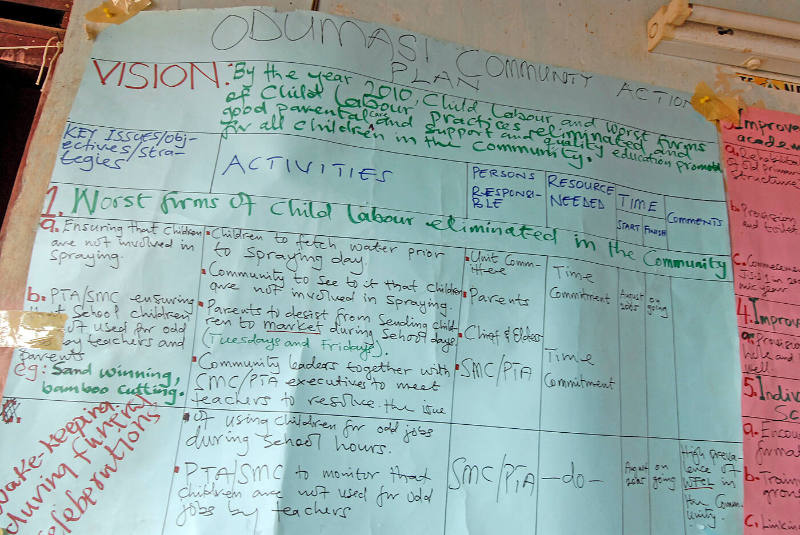 ODUMASI COMMUNITY ACTION
PLAN
VISION: By the year 2010, Child Labour and worst forms
of Child Labour and Practices eliminated and
good parental care and support and quality education promoted
for all children in the Community.
KEY ISSUES/obj-
ectives/stra-
tegies
ACTIVITIES
PERSONS
RESPONSI-
BLE
RESOURCE
NEEDED
TIME
START FINISH
COMMENTS
1. Worst forms of Child Labour eliminated in the Community
a. Ensuring that Children
are not involved in
Spraying.
Children to fetch water prior
to spraying day.
Community to see to it that children
are not involved in spraying.
Unit Comm-
ittee
Parents
Time
Commitment
August
2005
on
going
b. PTA/SMC ensuring
that School children
not used for odd
by teachers and
parents
eg: Sand winning,
bamboo cutting.
Parents to desist from sending child-
ren to market during school days
(Tuesdays and Fridays).
Community leaders together with
SMC/PTA executives to meet
teachers to resolve the issue
of using children for odd jobs
during School hours.
Chief & Elders
SMC/PTA
Time
Commitment
Wake-keeping
during funeral
celeberations
PTA/SMC to monitor that
children are not used for odd
jobs by teachers
SMC/PTA
-do-
August
2005
on
going
High preva-
lence of
WFCL in
the Comm-
unity.
3. Improve
academ
a. Rehabilita
of old primar
Structure
b. Provision
and toilet
c. Commencem
JSS 1 in 20
mic year
4. Improv
a. Provision
hole and
well.
5. Indiv
Sc
a. Encou
format
b. Train
c. Linkin